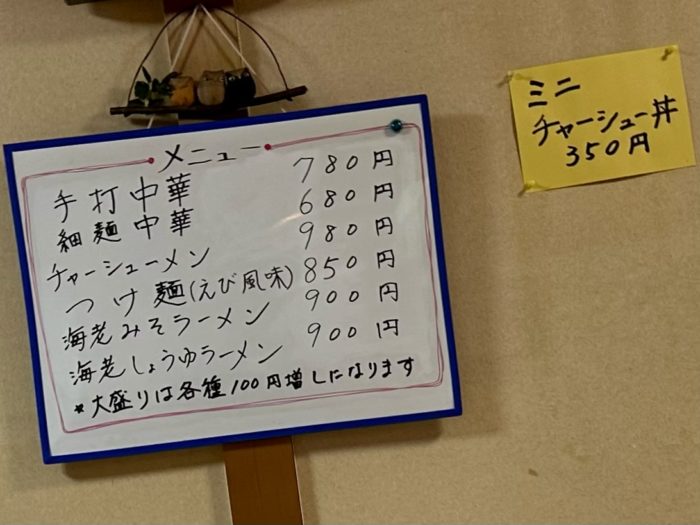 メニュー
手打中華 780円
細麺中華 680円
チャーシューメン 980円
つけ麺(えび風味) 850円
海老みそラーメン 900円
海老しょうゆラーメン 900円
*大盛りは各種100円増しになります
ミニ
チャーシュー丼
350円